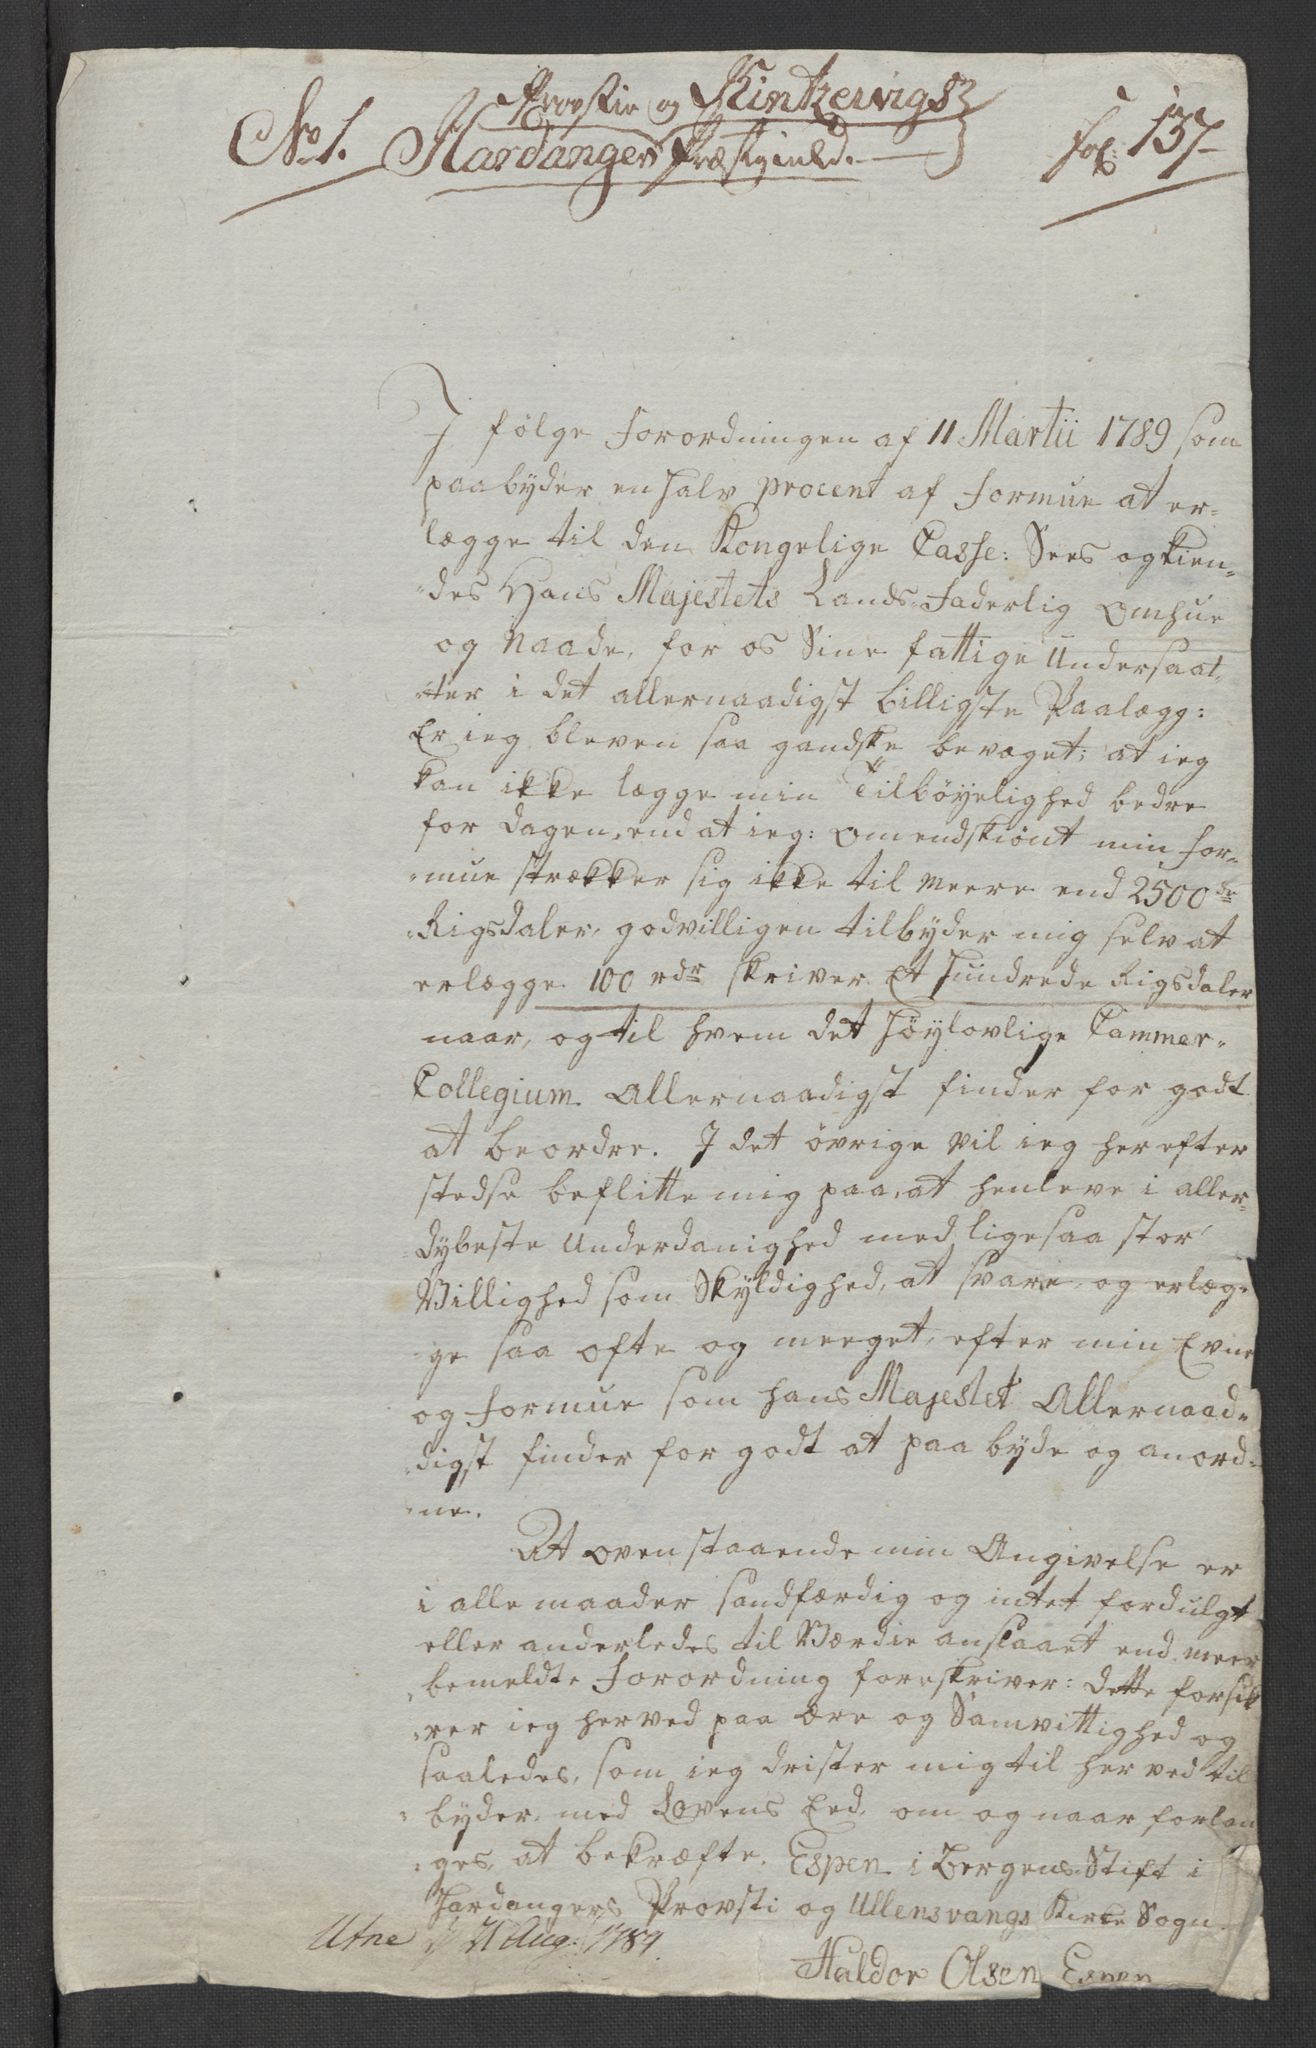 Provstie og Kintzervigs
No 1. Hardanger Præstegield. Fol: 137
I følge Forordningen af 11 Martii 1789 som
paabÿder en halv procent af Formue at er-
lægge til den Kongelige Casse: Sees og kien-
des Hans Majestets Lands-Faderlig Omhue
og Naade, for os Sine fattige Undersaat-
ter i det allernaadigst billigste Paalægg:
Er ieg bleven saa gandske bevæget; at ieg
kan ikke lægge min Tilböÿelighed bedre
for dagen, end at ieg: Omendskiönt min For-
mue strækker sig ikke til meere end 2500de
Rigsdaler, godvilligen tilbÿder mig selv at
erlægge 100 rdr skriver Et Hundrede Rigsdaler
naar, og til hvem det Höÿlovlige Cammer-
Collegium Allernaadigst finder for godt
at beordre. I det övrige vil ieg herefter
stedse beflitte mig paa, at henleve i aller-
dÿbeste Underdanighed med ligesaa stor
Villighed som Skÿldighed, at svare, og erlæg-
ge saa ofte og meeget, efter min Evne
og Formue som Hans Majestet Allernaad-
digst finder for godt at paabÿde og anord-
ne.
At ovenstaaende min Angivelse er
i alle maader sandfærdig og intet fordulgt
eller anderledes til Værdie anslaaet end meer
bemeldte Forordning foreskriver: dette forsik
rer ieg herved paa Ære og Samvittighed og
saaledes, som ieg drister mig til herved til
bÿder, med Lovens Eed, om og naar forlan
ges, at bekræfte. Espen i Bergens Stift i
Hardangers Provsti og Ullensvangs Kirke Sogn
Utne d 21 Aug: 1789.
Haldor Olsen Espen